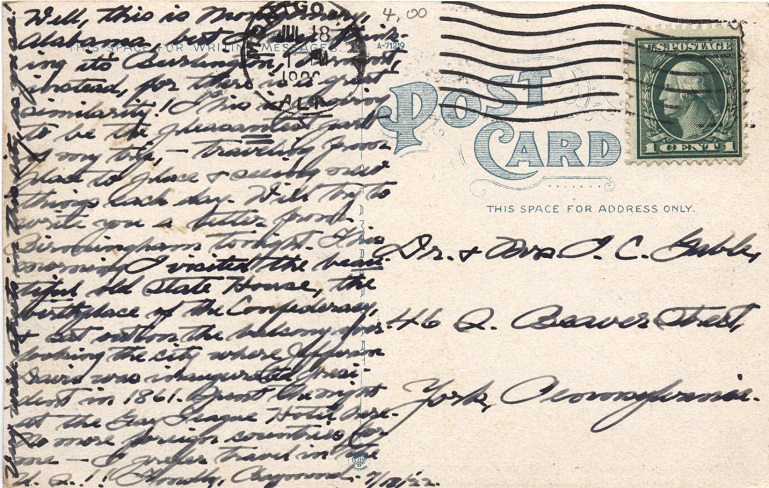 Well, this is Montgomery,
Alabama, best I can think-
ing its Burlington, Vermont,
instead, for there is great
similarity! This is going
to be the pleasantest part
of my trip, - traveling from
place to place & seeing new
things each day. Will try to
write you a letter from
Birmingham tonight. This
morning I visited the beau-
tiful old State House, the
birthplace of the Confederacy,
& sat out on the balcony over-
looking the city where Jefferson
Davis was inaugurated Presi-
dent in 1861. Spent the night
at the Gay Teague Hotel, here.
No more foreign countries for
me - I prefer travel in the
U. S. !! Howdy, Raymond. 7/18/22
THIS SPACE FOR WRITING MESSAGES
A-71849
4.00
MONTGO
JUL 18
1 PM
ALA
U.S. POSTAGE
1 CENT 1
POST
CARD
THIS SPACE FOR ADDRESS ONLY.
Dr. & Mrs. I. C. Gable,
46 S. Beaver Street,
York, Pennsylvania.